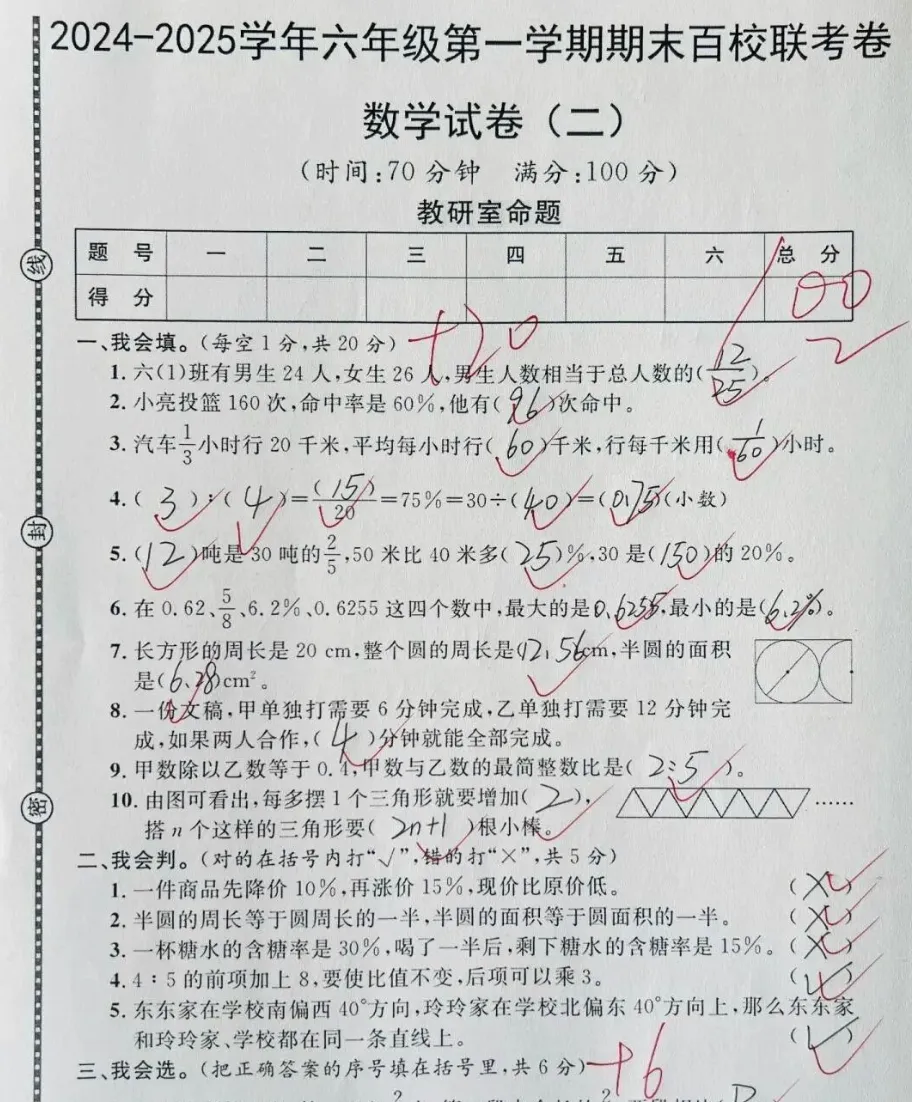 2024-2025学年六年级第一学期期末百校联考卷
数学试卷（二）
（时间:70分钟 满分:100分）
教研室命题
题 号 一 二 三 四 五 六 总 分
得 分 100
一、我会填。（每空1分,共20分） +20
1. 六(1)班有男生24人,女生26人,男生人数相当于总人数的(12/25)。
2. 小亮投篮160次,命中率是60%,他有(96)次命中。
3. 汽车1/3小时行20千米,平均每小时行(60)千米,行每千米用(1/60)小时。
4. (3):(4)=(15)/20=75%=30÷(40)=(0.75)(小数)
5. (12)吨是30吨的2/5,50米比40米多(25)%,30是(150)的20%。
6. 在0.62、5/8、6.2%、0.6255这四个数中,最大的是0.6255,最小的是(6.2%)。
7. 长方形的周长是20 cm,整个圆的周长是(12.56)cm,半圆的面积
是(6.28)cm²。
8. 一份文稿,甲单独打需要6分钟完成,乙单独打需要12分钟完
成,如果两人合作,(4)分钟就能全部完成。
9. 甲数除以乙数等于0.4,甲数与乙数的最简整数比是(2:5)。
10. 由图可看出,每多摆1个三角形就要增加(2), ……
搭n个这样的三角形要(2n+1)根小棒。
二、我会判。（对的在括号内打“√”,错的打“×”,共5分）
1. 一件商品先降价10%,再涨价15%,现价比原价低。 (×)
2. 半圆的周长等于圆周长的一半,半圆的面积等于圆面积的一半。 (×)
3. 一杯糖水的含糖率是30%,喝了一半后,剩下糖水的含糖率是15%。(×)
4. 4∶5的前项加上8,要使比值不变,后项可以乘3。 (√)
5. 东东家在学校南偏西40°方向,玲玲家在学校北偏东40°方向上,那么东东家
和玲玲家、学校都在同一条直线上。 (√)
三、我会选。（把正确答案的序号填在括号里,共6分） +6
线
封
密